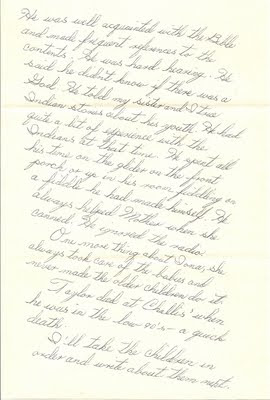 He was well acquainted with the Bible
and made frequent references to the
contents. He was hard hearing. He
said he didn't know if there was a
God. He told my sister and I true
Indian stories about his youth. He had
quite a bit of experience with the
Indians at that time. He spent all
his time on the glider on the front
porch or up in his room fiddling on
a fiddle he had made himself. He
always helped Mother when she
canned. He enjoyed the radio.
One more thing about Iona, she
always took care of the babies and
never made the older children do it.
Taylor died at Challis' when
he was in the low 90's - a quick
death.
I'll take the children in
order and write about them next.